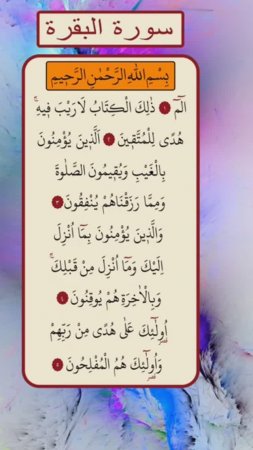 سورة البقرة
بِسْمِ اللهِ الرَّحْمٰنِ الرَّحِيْمِ
الٓمّٓ ١ ذٰلِكَ الْكِتَابُ لَا رَيْبَ فِيْهِ ۛ
هُدًى لِلْمُتَّقِينَ ٢ اَلَّذِينَ يُؤْمِنُونَ
بِالْغَيْبِ وَيُقِيمُونَ الصَّلٰوةَ
وَمِمَّا رَزَقْنَاهُمْ يُنْفِقُونَ ٣
وَالَّذِينَ يُؤْمِنُونَ بِمَٓا اُنْزِلَ
اِلَيْكَ وَمَٓا اُنْزِلَ مِنْ قَبْلِكَ ۚ
وَبِالْاٰخِرَةِ هُمْ يُوقِنُونَ ٤
اُو۬لٰٓئِكَ عَلٰى هُدًى مِنْ رَبِّهِمْ
وَاُو۬لٰٓئِكَ هُمُ الْمُفْلِحُونَ ٥